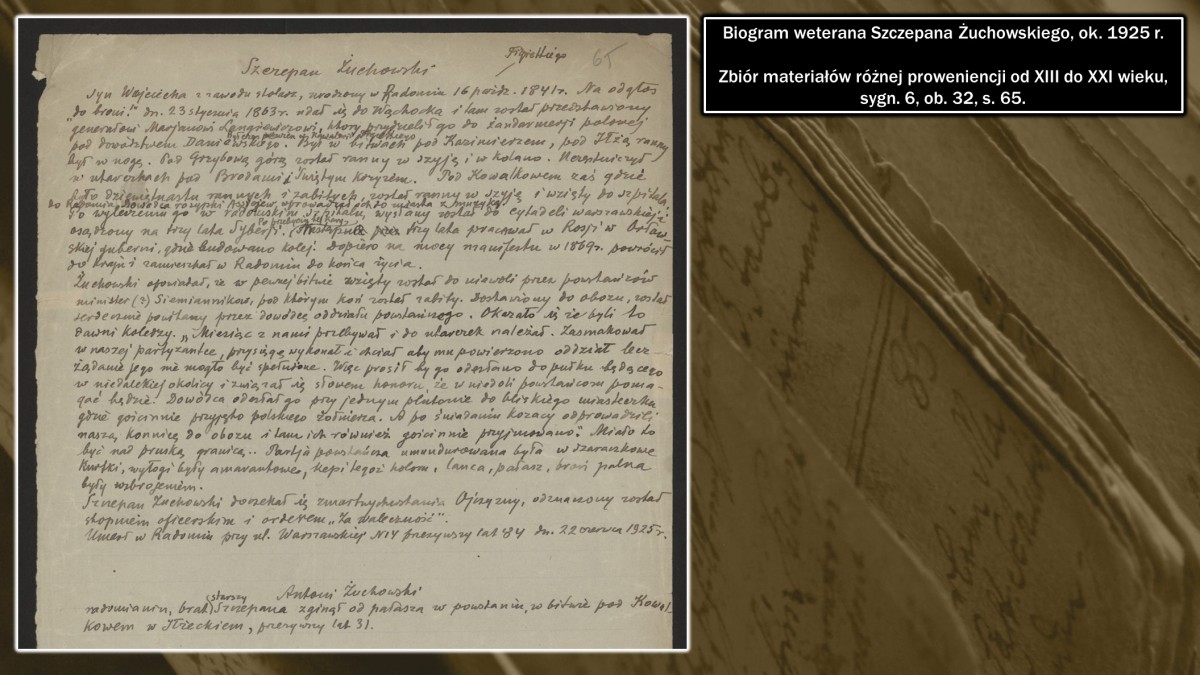 Biogram weterana Szczepana Żuchowskiego, ok. 1925 r.
Zbiór materiałów różnej proweniencji od XIII do XXI wieku,
sygn. 6, ob. 32, s. 65.
65
Szczepan Żuchowski
Syn Wojciecha z zawodu stolarz, urodzony w Radomiu 16 paźdz. 1841r. Na odgłos
„do broni!” dn. 23 stycznia 1863r. udał się do Wąchocka i tam został przedstawiony
generałowi Marjanowi Langiewiczowi, który przydzielił go do żandarmerji polowej
pod dowództwem Był w bitwach pod Kazimierzem, pod Iłżą ranny
był w nogę. Pod Grzybową górą został ranny w szyję i w kolano. Uczestniczył
w utarczkach pod Brodami i Świętym Krzyżem. Pod Kowalkowem zaś gdzie
było dziewiętnastu rannych i zabitych, został ranny w szyję i wzięty do szpitala
do Radomia. Dowódca rosyjski wprowadzał ich do miasta z muzyką.
Po wyleczeniu go w radomskim szpitalu, wysłany został do cytadeli warszawskiej i
osądzony na trzy lata Syberji. Po przebyciu tej kary, trzy lata pracował w Rosji w
skiej guberni, gdzie budowano kolej. Dopiero na mocy manifestu w 1869r. powrócił
do kraju i zamieszkał w Radomiu do końca życia.
Żuchowski opowiadał, że w pewnej bitwie wzięty został do niewoli przez powstańców
minister (?) Siemiannikow, pod którym koń został zabity. Dostawiony do obozu, został
serdecznie powitany przez dowódcę oddziału powstańczego. Okazało się że byli to
dawni koledzy. „Miesiąc z nami przebywał i do utarczek należał. Zasmakował
w naszej partyzantce, przysięgę wykonał i chciał aby mu powierzono oddział lecz
żądanie jego nie mogło być spełnione. Więc prosił by go odesłano do pułku będącego
w niedalekiej okolicy i związał się słowem honoru, że w niedoli powstańcom poma-
gać będzie. Dowódca odesłał go przy jednym plutonie do bliskiego miasteczka
gdzie gościnnie przyjęto polskiego żołnierza. A po śniadaniu kozacy odprowadzili
naszą konnicę do obozu i tam ich również gościnnie przyjmowano.” Miało to
być nad pruską granicą.. Partja powstańcza umundurowana była w szaraczkowe
kurtki, wyłogi były amarantowe, kepi tegoż koloru, lanca, pałasz, broń palna
były uzbrojeniem.
Szczepan Żuchowski doczekał się zmartwychwstania Ojczyzny, odznaczony został
stopniem oficerskim i orderem „Za waleczność”.
Umarł w Radomiu przy ul. Warszawskiej N14 przeżywszy lat 84 dn. 22 czerwca 1925r.
Antoni Żuchowski
radomianin, brat starszy Szczepana zginął od pałasza w powstaniu, w bitwie pod Kowal-
kowem w Iłżeckiem, przeżywszy lat 31.